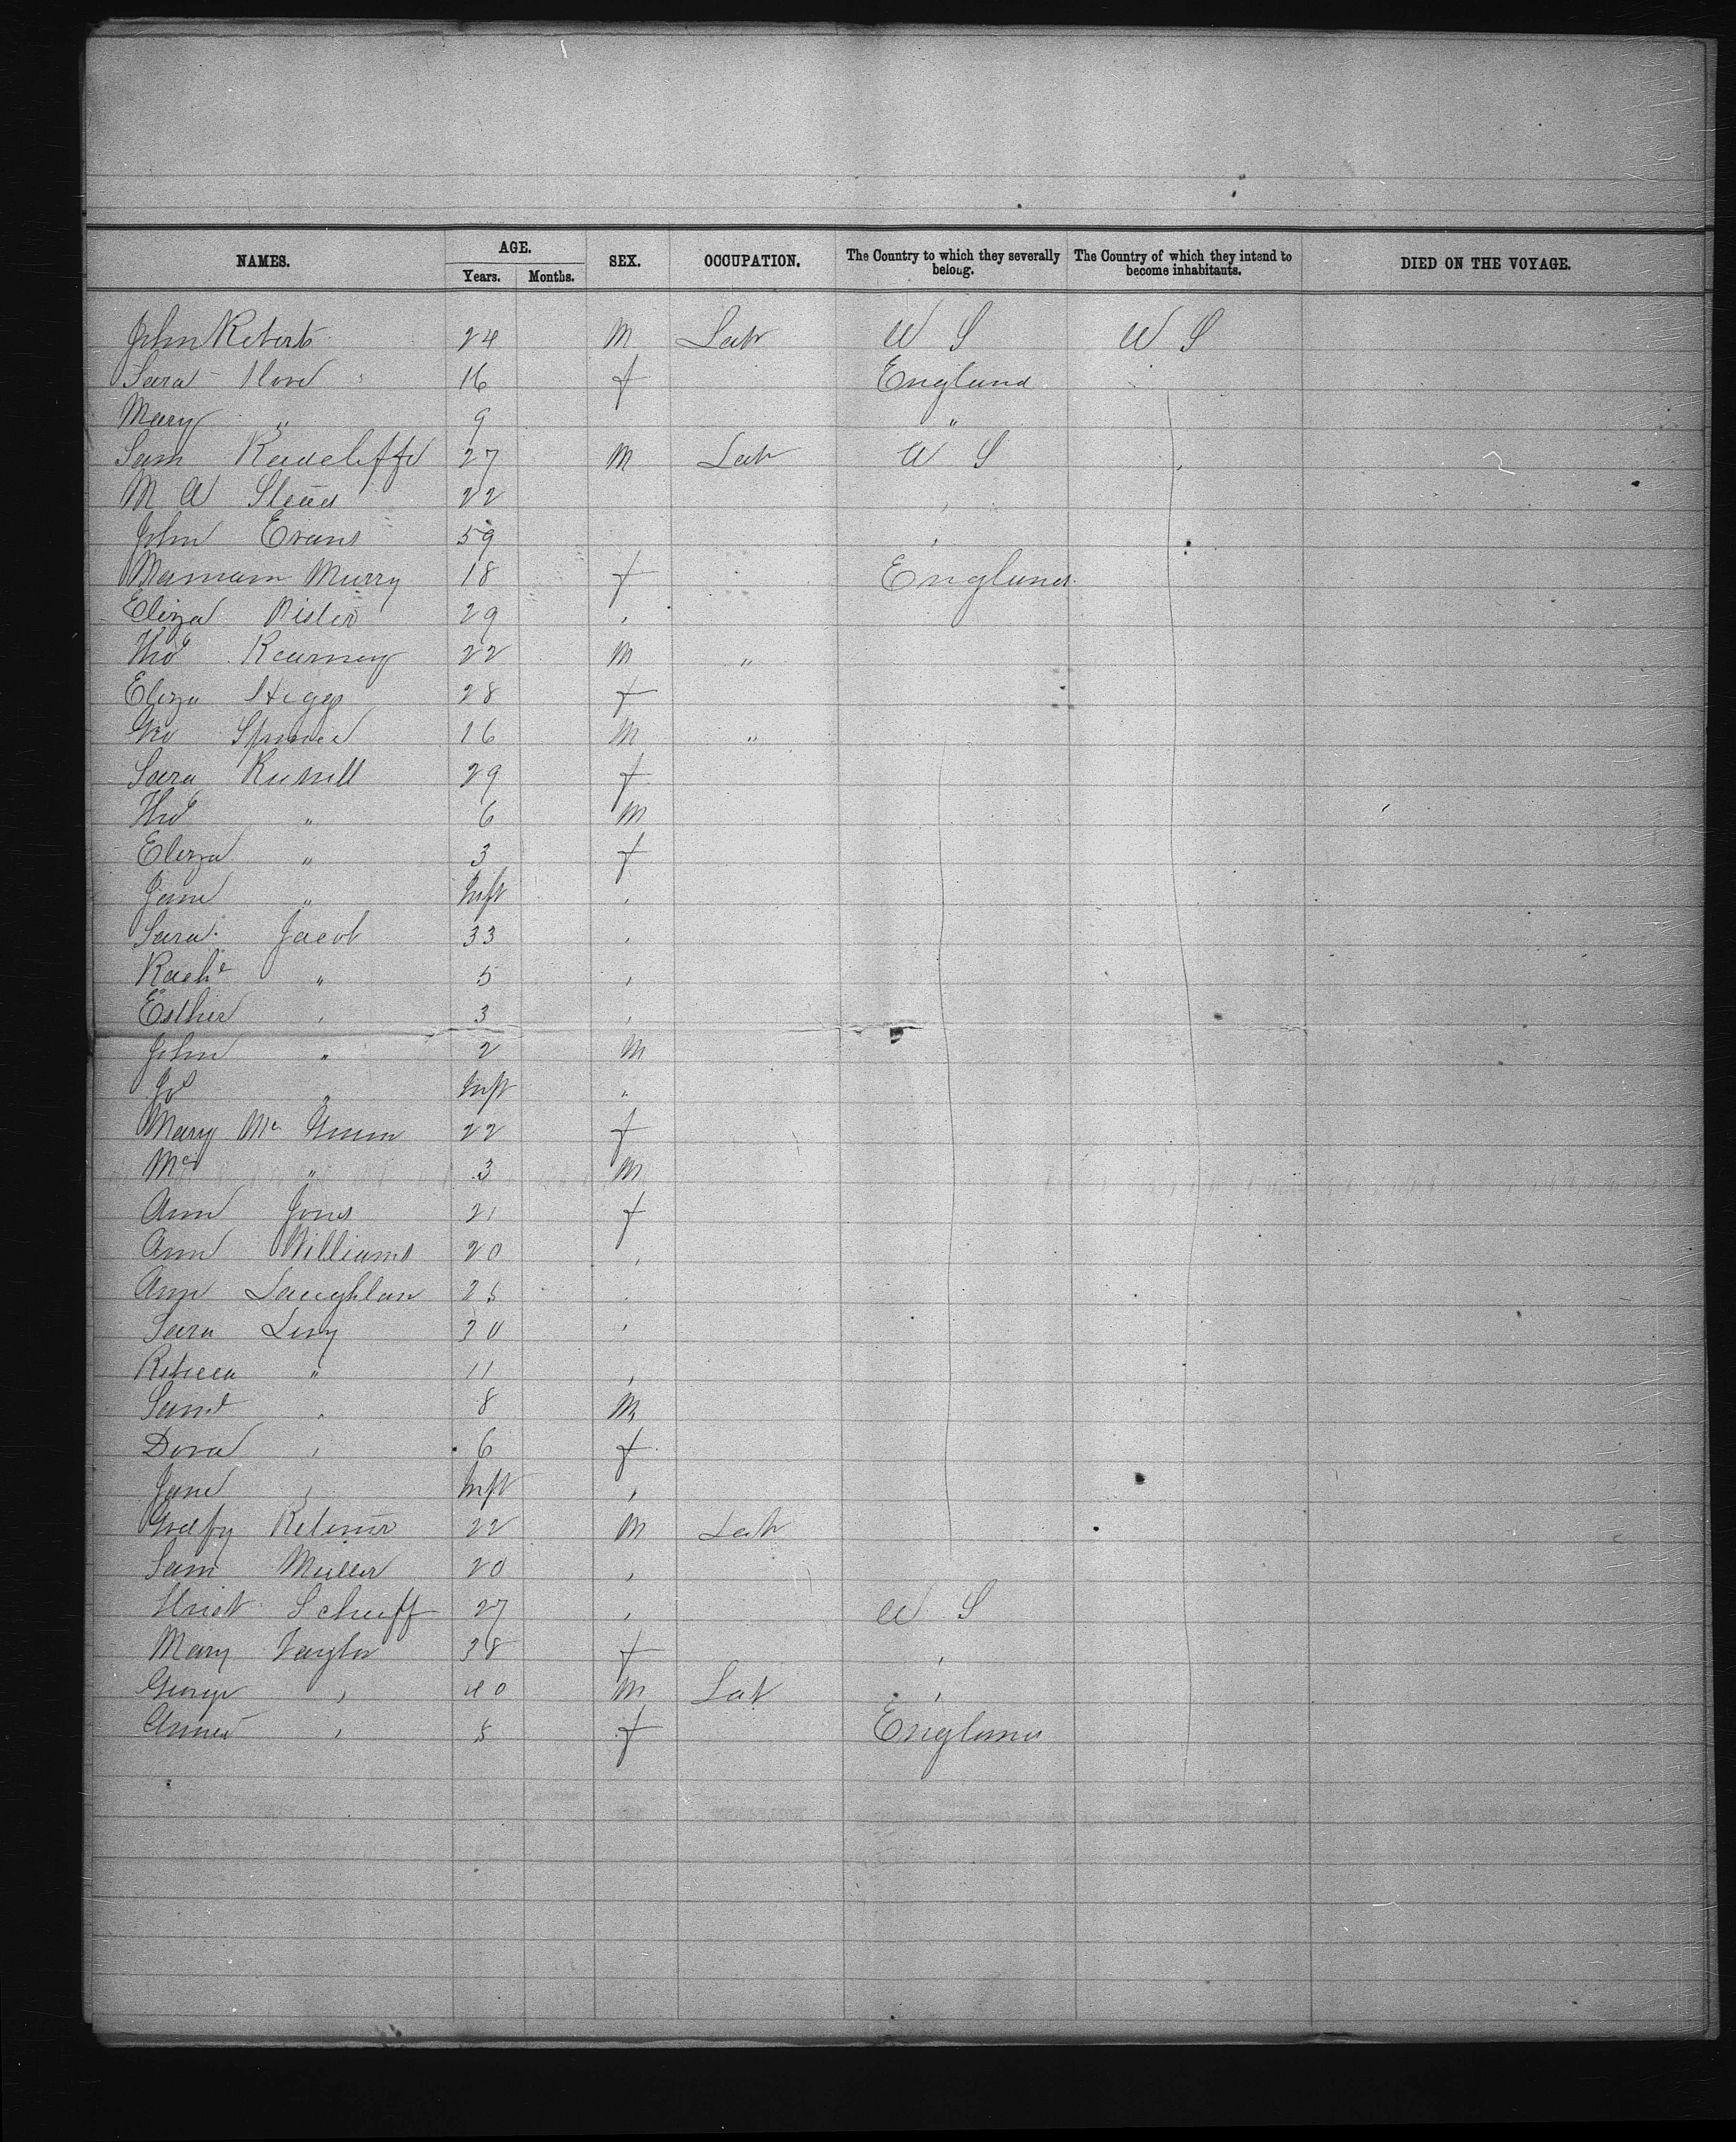 NAMES. AGE. SEX. OCCUPATION. The Country to which they severally belong. The Country of which they intend to become inhabitants. DIED ON THE VOYAGE.
Years. Months.
John Roberts 24 M Lab U S U S
Sara 16 f England
Mary " 9 "
Sam Radcliffe 27 M Lab U S
M A 22
John Evans 59
Murry 18 f England
Eliza 29
Tho^s Kearney 22 M "
Eliza Higgs 28 f
Geo 16 M "
Sara Russell 29 f
Tho^s " 6 M
Eliza " 3 f
Jane " Inft
Sara Jacob 33
Rach^l " 5
Esther " 3
John " 2 M
Jo^s " Inft "
Mary Mc 22 f
" 3 M
Ann Jones 21 f
Ann Williams 20
Ann Laughlan 25
Sara Levy 30
Rebecca " 11
Sam^l " 8 M
Dora " 6 f
Jane " Inft
22 M Lab
Sam Müller 20
27 U S
Mary Taylor 38 f
George " 40 M Lab
Annie " 8 f England